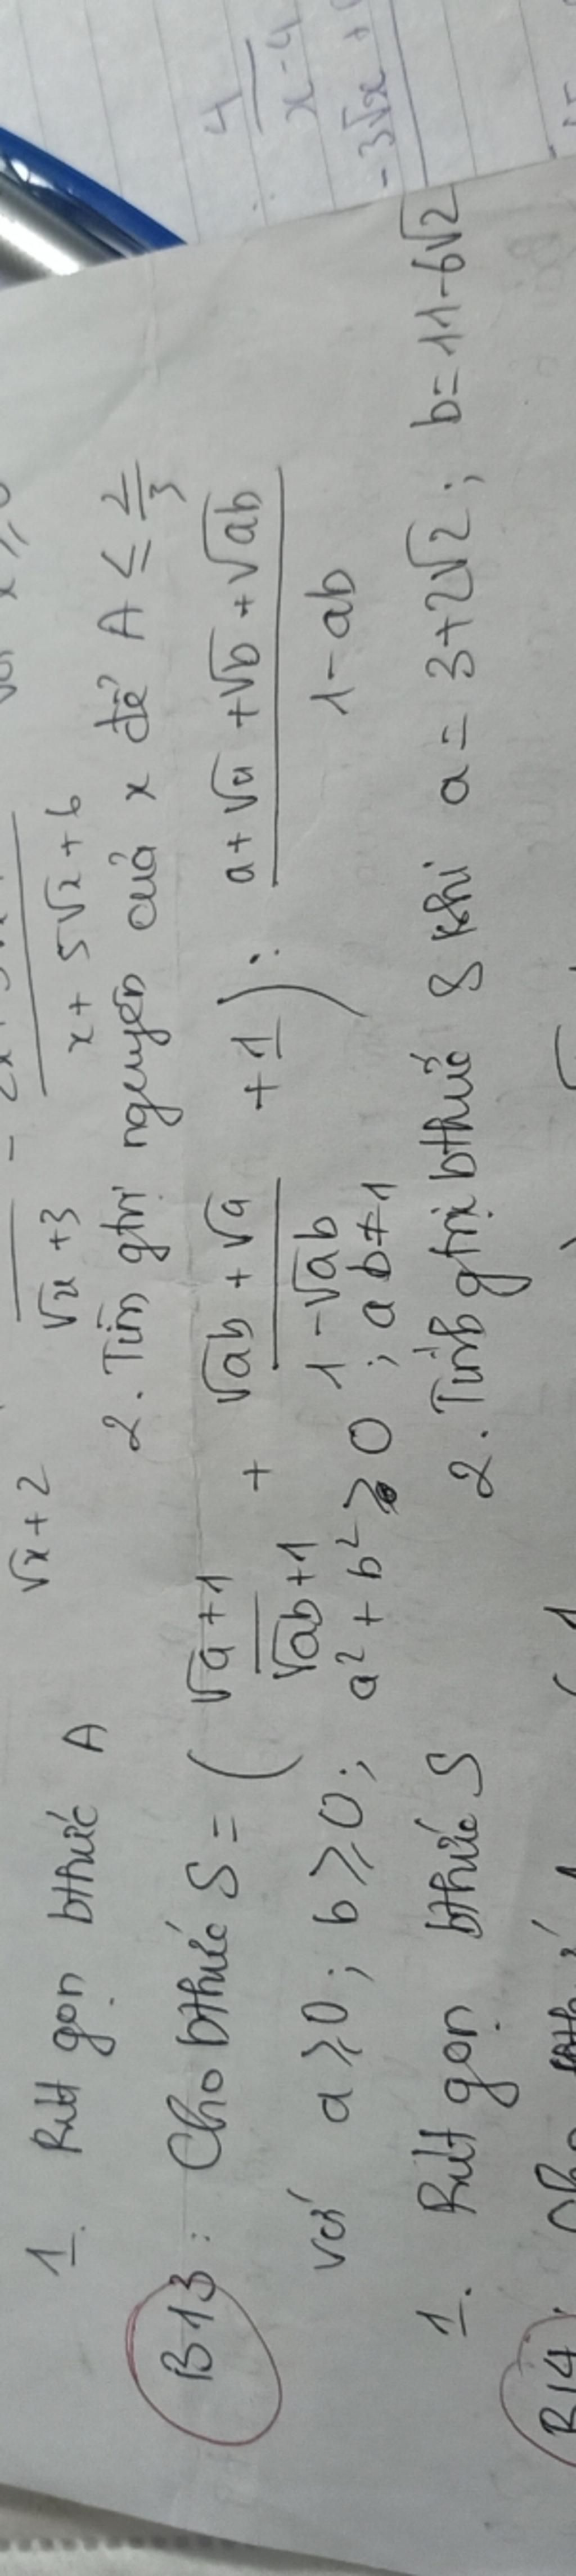 4
x-4
-3√x +
√x+2   √x+3   x+5√x+6
1. Rút gọn bthức A   2. Tìm gtrị nguyên của x để A ≤ 2/3
B13: Cho bthức S = ( (√a+1)/(√ab+1) + (√ab+√a)/(1-√ab) + 1 ) : (a+√a+√b+√ab)/(1-ab)
với a ≥ 0; b ≥ 0; a²+b² ≥ 0; ab≠1
1. Rút gọn bthức S   2. Tính gtrị bthức S khi a = 3+2√2; b = 11-6√2
B14: